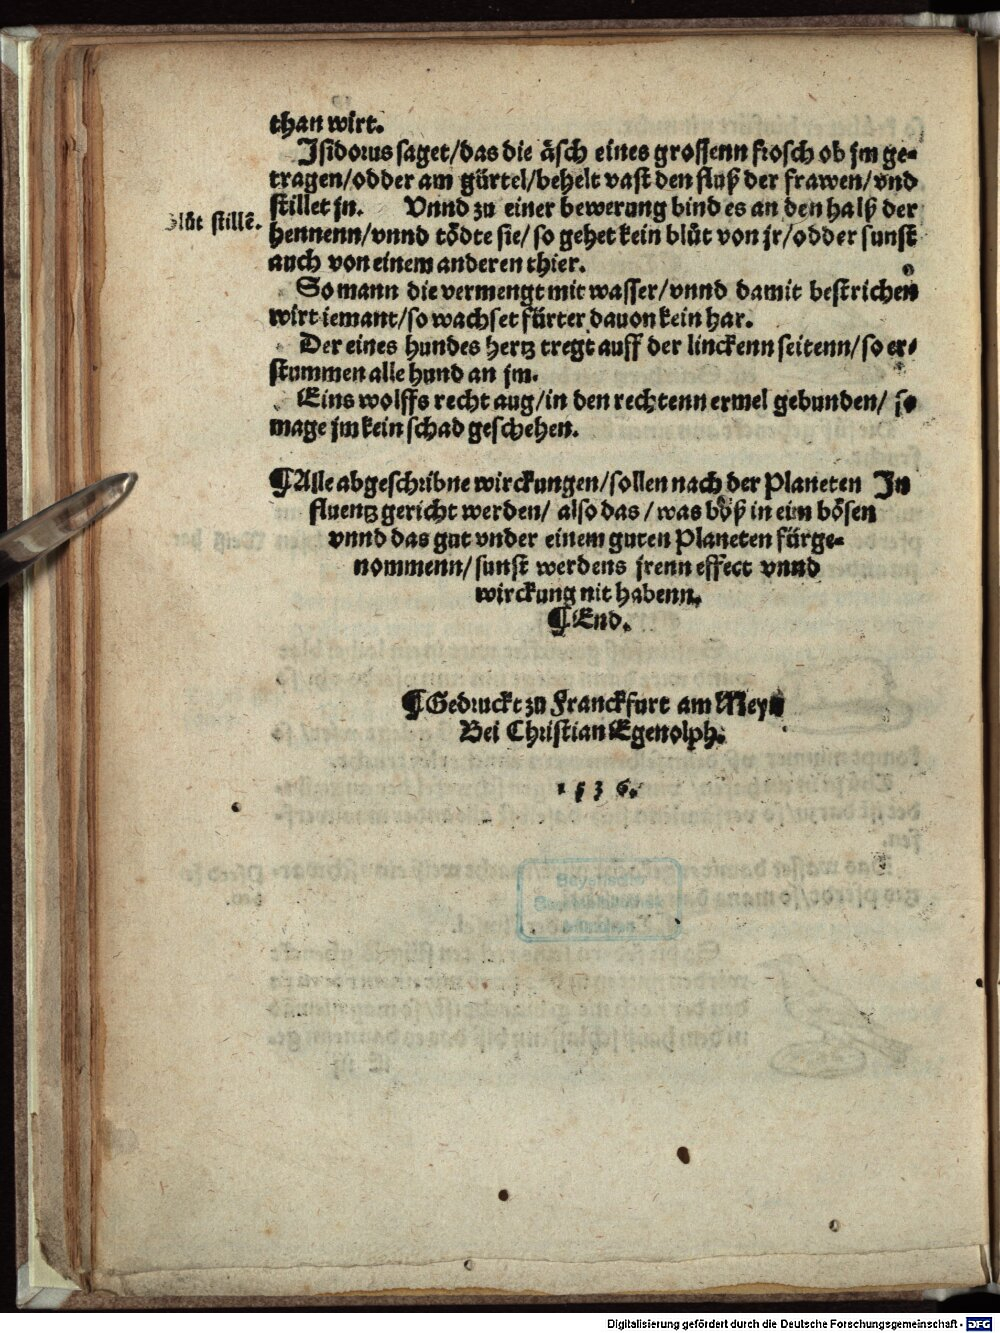 than wirt.
Isidorus saget/das die äsch eines grossenn frosch ob jm ge-
tragen/odder am gürtel/behelt vast den fluß der frawen/vnd
stillet jn. Vnnd zu einer bewerung bind es an den halß der
blůt stillē.
hennenn/vnnd tödte sie/so gehet kein blůt von jr/odder sunst
auch von einem anderen thier.
So mann die vermengt mit wasser/vnnd damit bestrichen
wirt iemant/so wachset fürter dauon kein har.
Der eines hundes hertz tregt auff der linckenn seitenn/so er-
stummen alle hund an jm.
Eins wolffs recht aug/in den rechtenn ermel gebunden/ so
mage jm kein schad geschehen.
¶Alle abgeschribne wirckungen/sollen nach der Planeten In
fluentz gericht werden/ also das/was böß in eim bösen
vnnd das gut vnder einem guten Planeten fürge-
nommenn/sunst werdens jrenn effect vnnd
wirckung nit habenn.
¶End.
¶Gedruckt zu Franckfurt am Meyn
Bei Christian Egenolph.
1536.
Bayerische
Digitalisierung gefördert durch die Deutsche Forschungsgemeinschaft - DFG